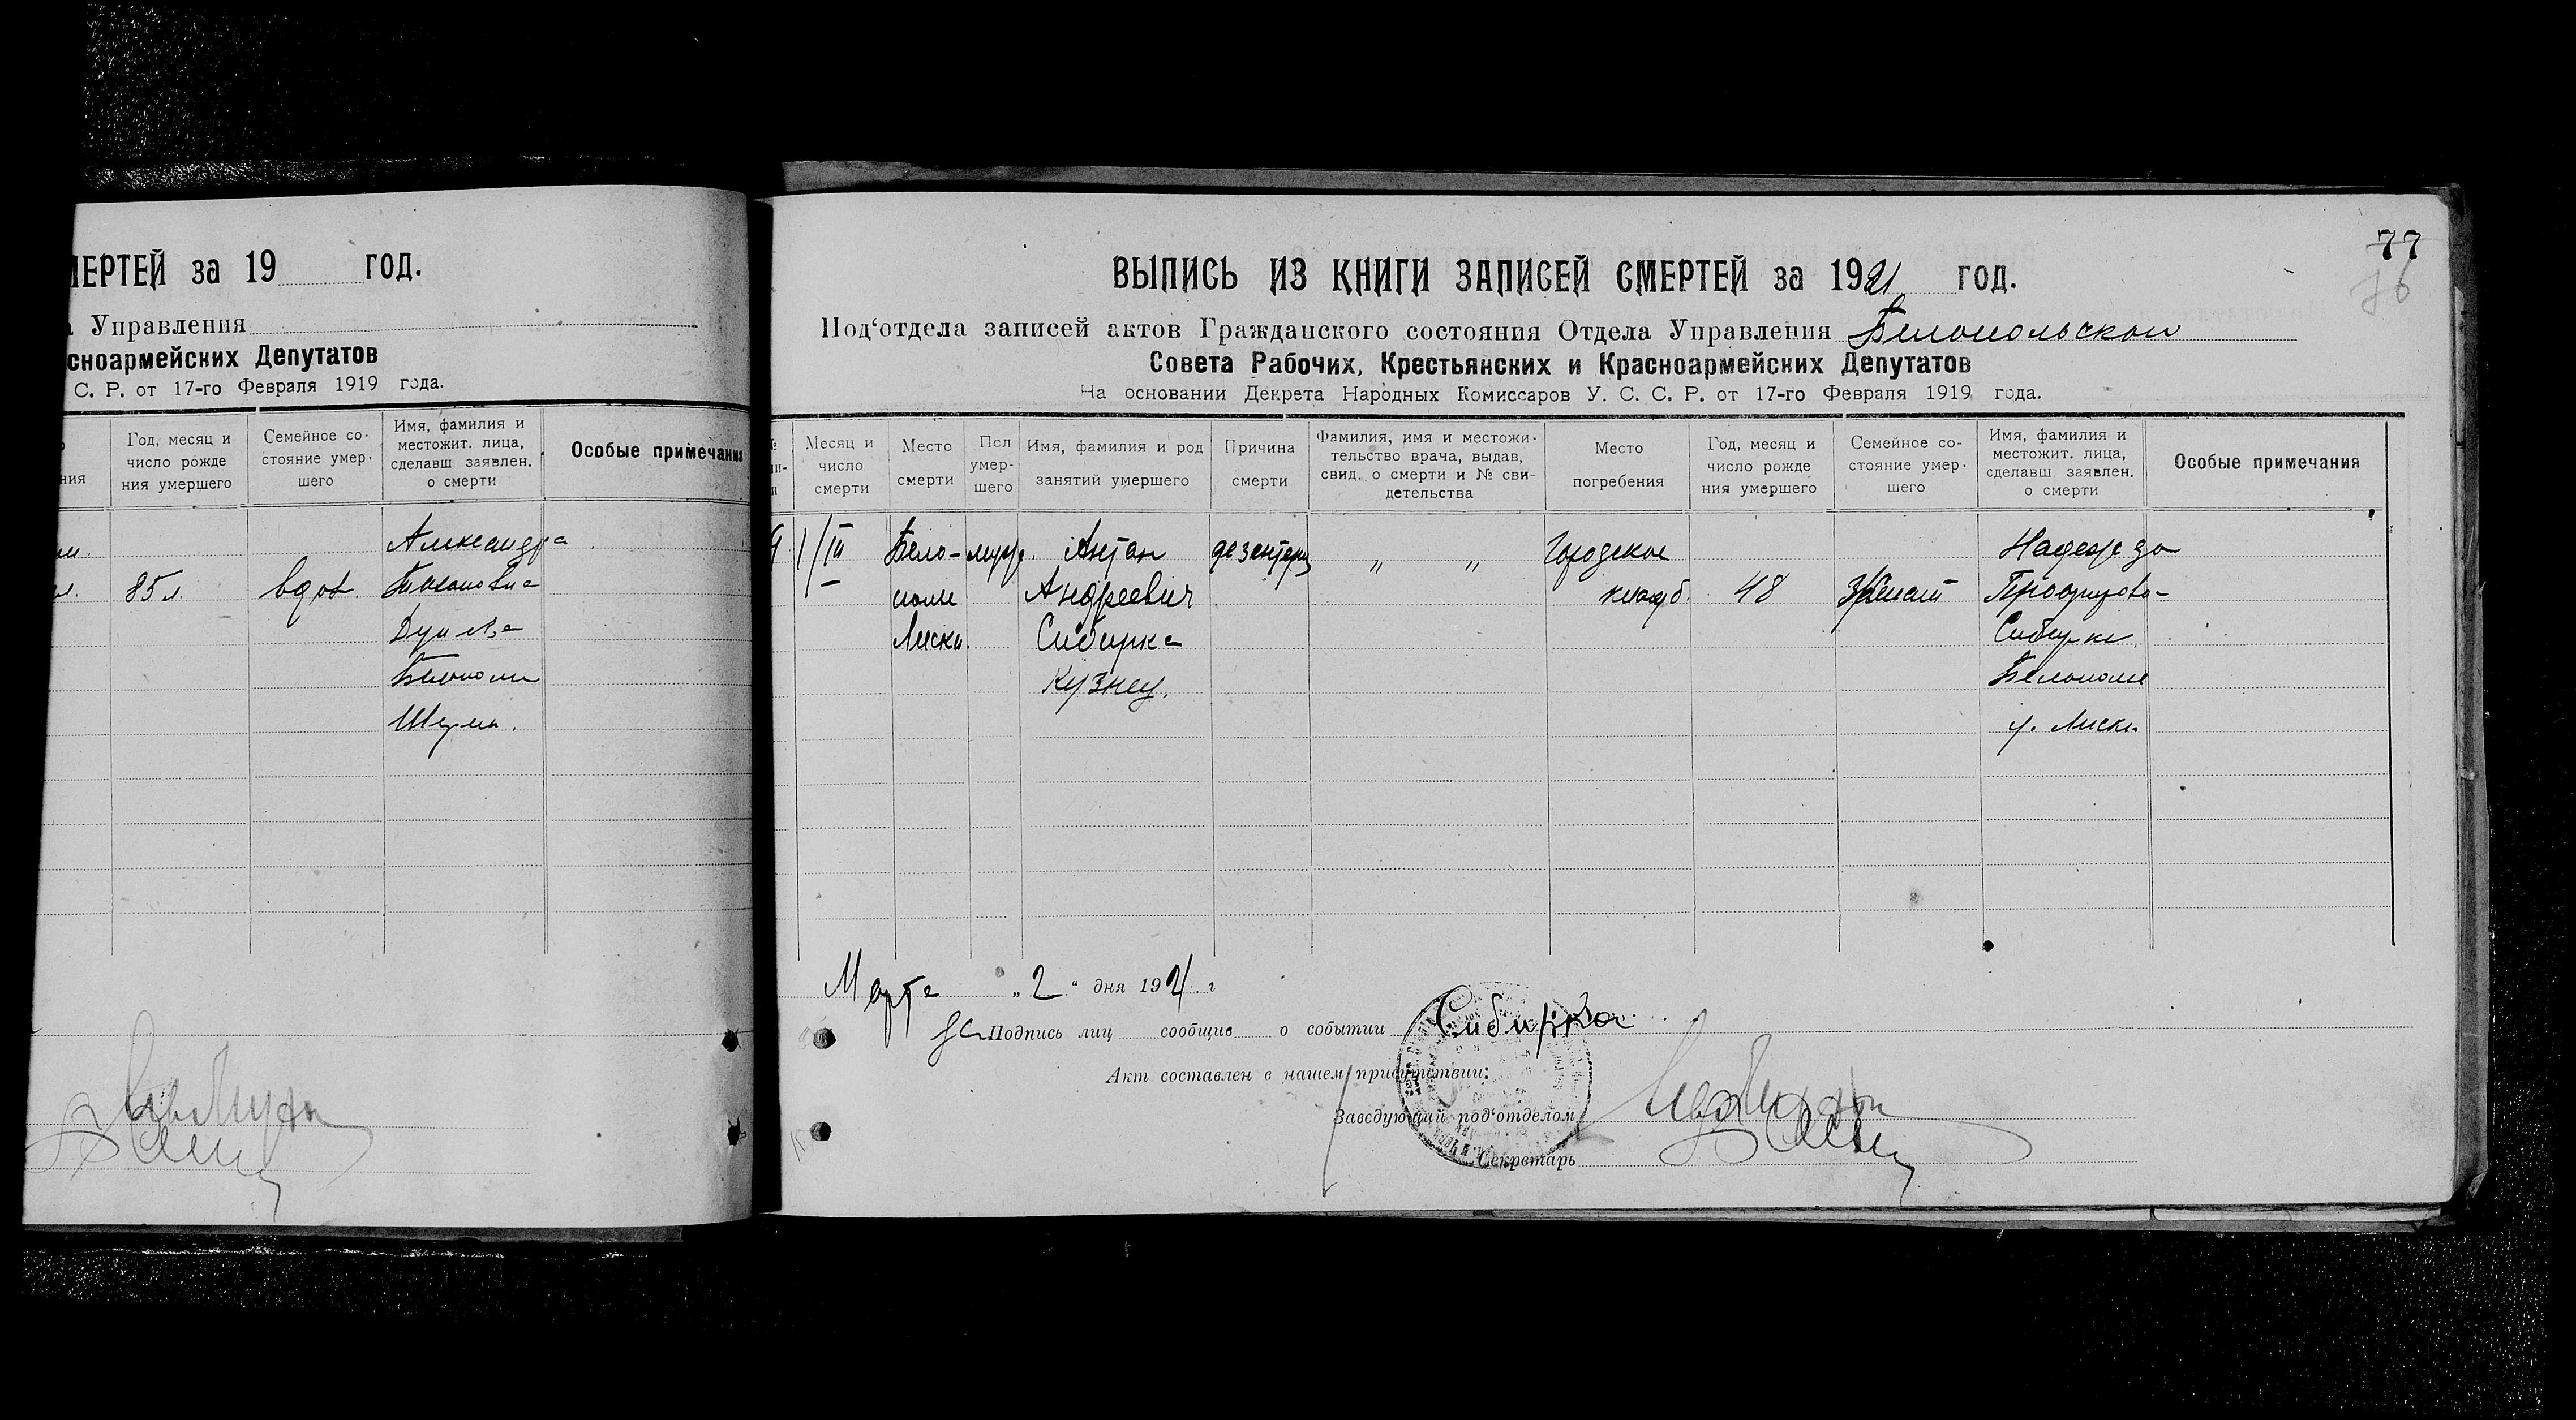 МЕРТЕЙ за 19 ГОД.
Управления
сноармейских Депутатов
С. Р. от 17-го Февраля 1919 года.
ния
Год, месяц и
число рожде
ния умершего
Семейное со-
стояние умер-
шего
Имя, фамилия и
местожит. лица,
сделавш заявлен.
о смерти
Особые примечания
Александра
85 л.
вдов.
Белополье
77
76
ВЫПИСЬ ИЗ КНИГИ ЗАПИСЕЙ СМЕРТЕЙ за 1921 ГОД.
Под‘отдела записей актов Гражданского состояния Отдела Управления Белопольской
Совета Рабочих, Крестьянских и Красноармейских Депутатов
На основании Декрета Народных Комиссаров У. С. С. Р. от 17-го Февраля 1919 года.
Месяц и
число
смерти
Место
смерти
Пол
умер-
шего
Имя, фамилия и род
занятий умершего
Причина
смерти
Фамилия, имя и местожи-
тельство врача, выдав,
свид. о смерти и № сви-
детельства
Место
погребения
Год, месяц и
число рожде
ния умершего
Семейное со-
стояние умер-
шего
Имя, фамилия и
местожит. лица,
сделавш. заявлен.
о смерти
Особые примечания
1/III
Бело-
поле
Лиски.
муж.
Антон
Андреевич
Сибирка
Кузнец.
дезентерия
„ „
Городское
кладб.
48
Женат
Надежда
Сибирка
Белополье
у. Лиски.
Марта „2“ дня 1921 г
Подпись лиц сообщив о событии Сибирка
Акт составлен в нашем присутствии:
Заведующий под‘отделом
Секретарь